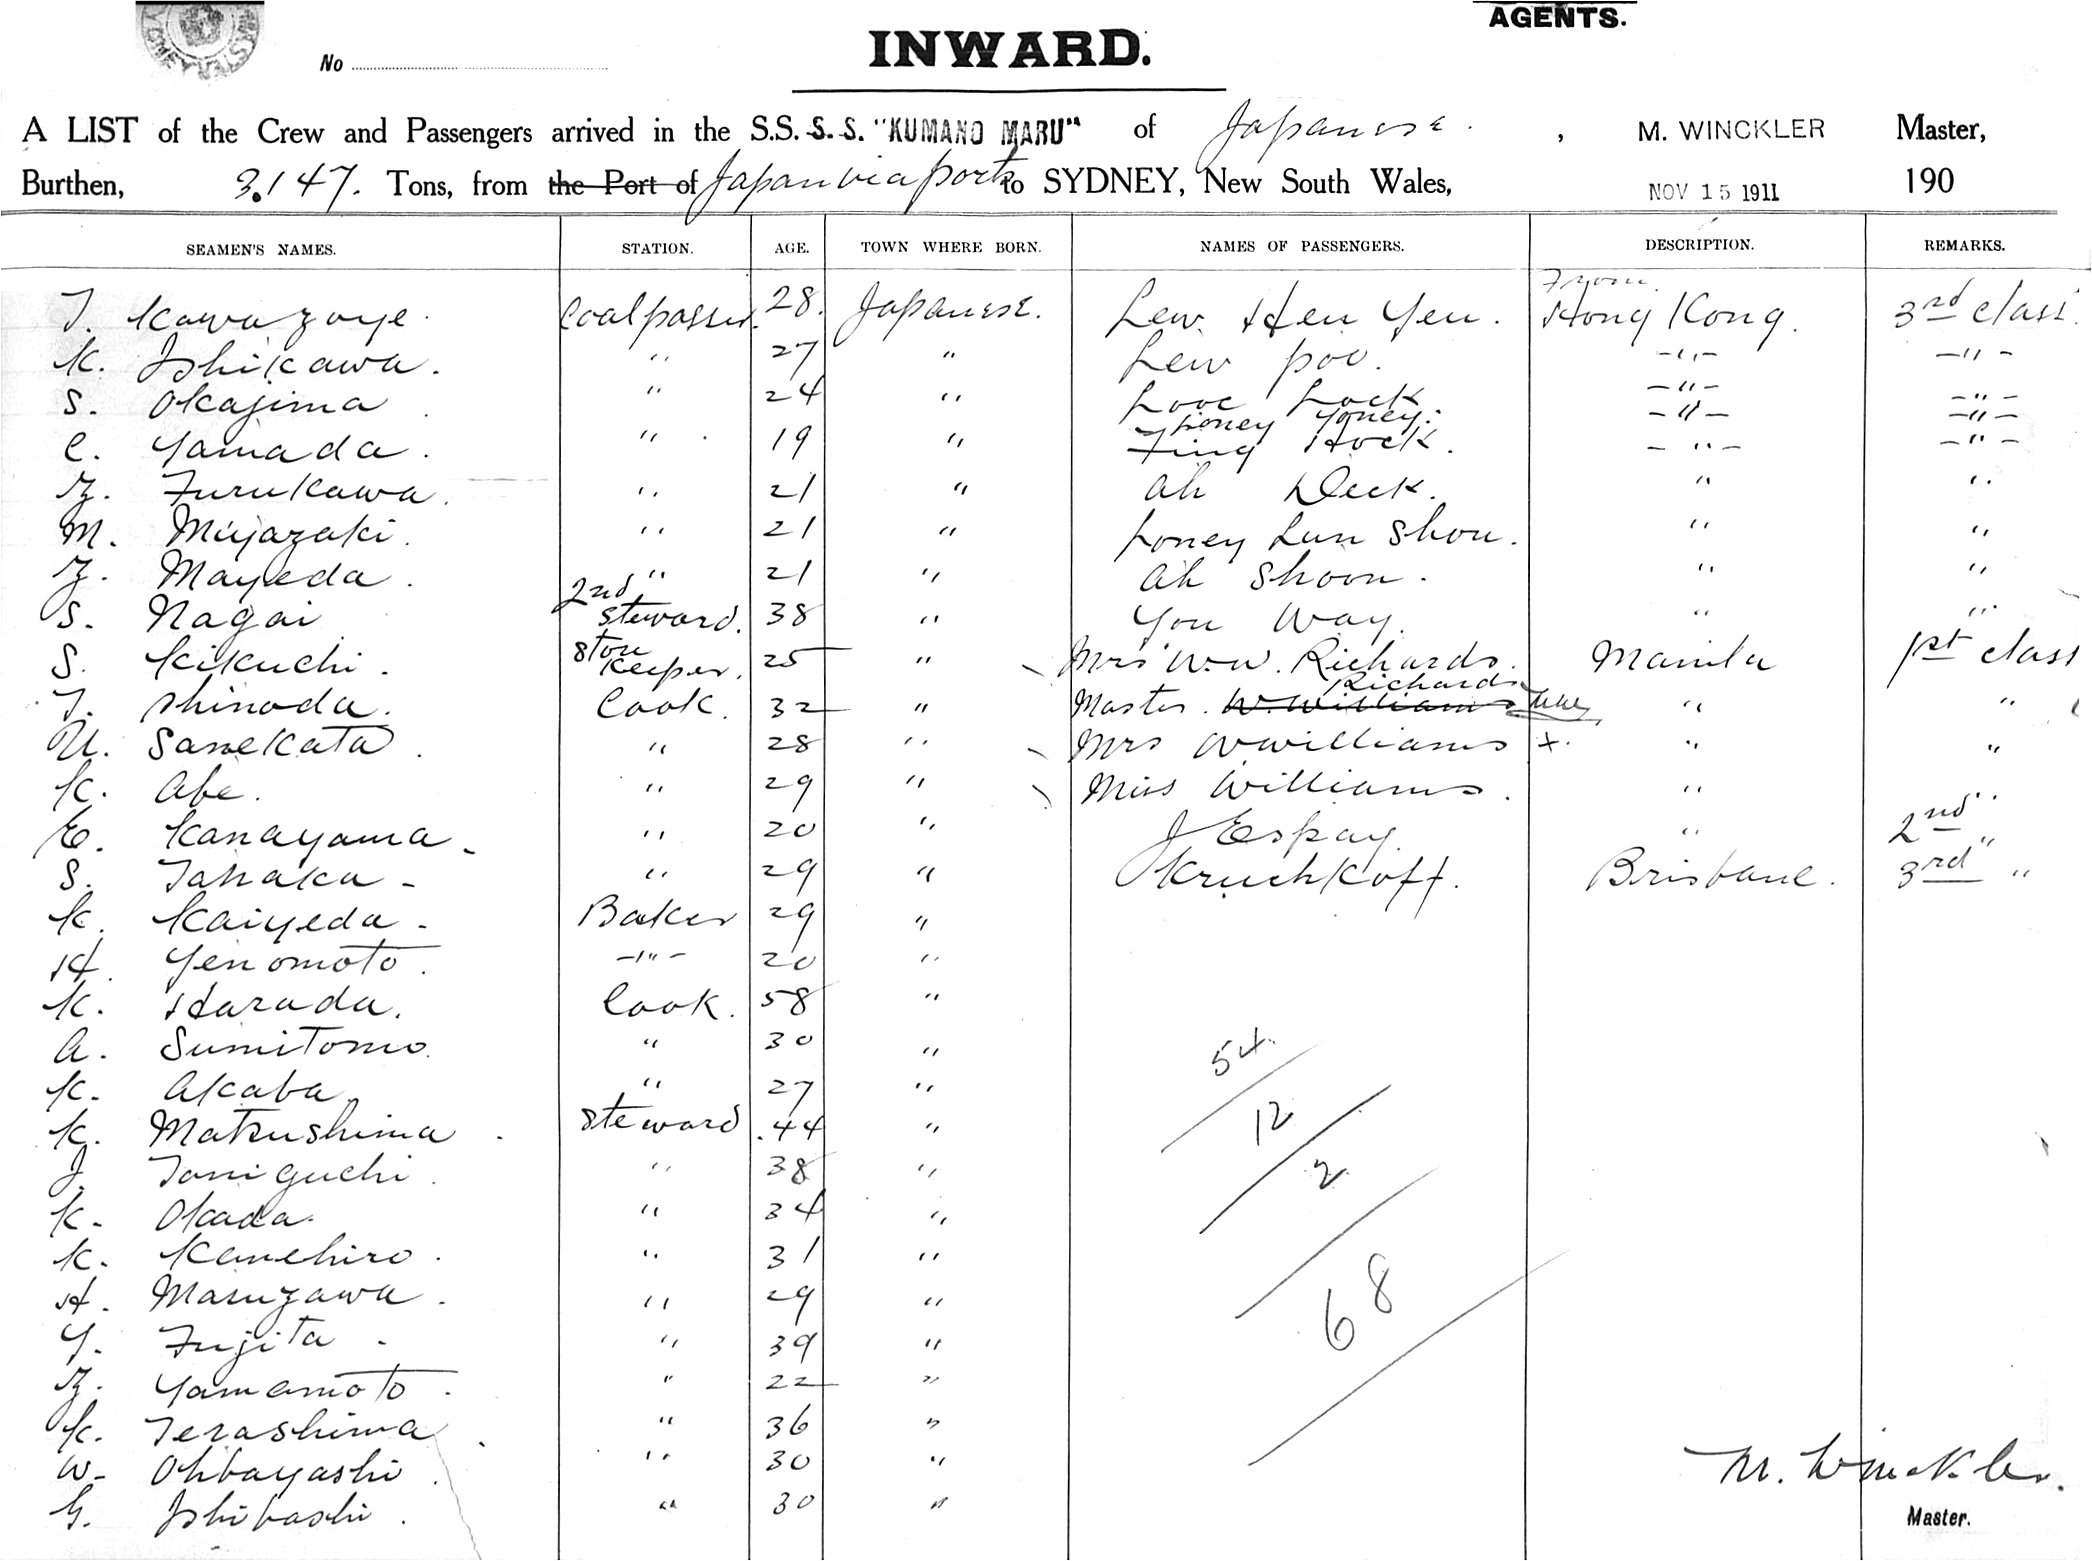 AGENTS.
No
INWARD.
A LIST of the Crew and Passengers arrived in the S.S. S. S. "KUMANO MARU" of Japanese. , M. WINCKLER Master,
Burthen, 3.147. Tons, from the Port of Japan via ports to SYDNEY, New South Wales, NOV 15 1911 190
SEAMEN'S NAMES. STATION. AGE. TOWN WHERE BORN. NAMES OF PASSENGERS. DESCRIPTION. REMARKS.
From
T. Kawazoye. Coalpasser. 28. Japanese. Lew Hen Yeu. Hong Kong. 3rd class
K. Ishikawa. " 27 " Lew poo. -"- -"-
S. Okajima " 24 " Looe Lock -"- -"-
Loney Yoney. -"- -"-
C. Yamada. " 19 " Fing Hock. -"- -"-
Z. Furukawa. " 21 " Ah Deck. " "
M. Miyazaki. " 21 " Loney Lun Shou. " "
Z. Mayeda. " 21 " Ah Shoon. " "
S. Nagai 2nd steward. 38 " You Way. " "
S. Kikuchi. Store Keeper. 25 " Mrs W.W. Richards. Manila 1st class
Richards
T. Shinoda. Cook. 32 " Master. W. Williams " "
U. Sanekata. " 28 " Mrs W Williams x. " "
K. Abe. " 29 " Miss Williams. " "
E. Kanayama. " 20 " J Espay. " 2nd "
S. Tanaka - " 29 " Kruchkoff. Brisbane. 3rd "
K. Kaiyeda - Baker 29 "
H. Yenomoto. -"- 20 "
K. Harada. Cook. 58 "
A. Sumitomo. " 30 "
K. Akaba " 27 "
K. Matsushima. Steward .44 "
J. Taniguchi. " 38 "
K. Okada. " 34 "
K. Kanehiro. " 31 "
H. Maruzawa. " 29 "
Y. Fujita. " 39 "
Z. Yamamoto. " 22 "
K. Terashima. " 36 "
W. Ohbayashi. " 30 "
G. Ishibashi. " 30 "
54.
12
2
68
M. Winckler.
Master.